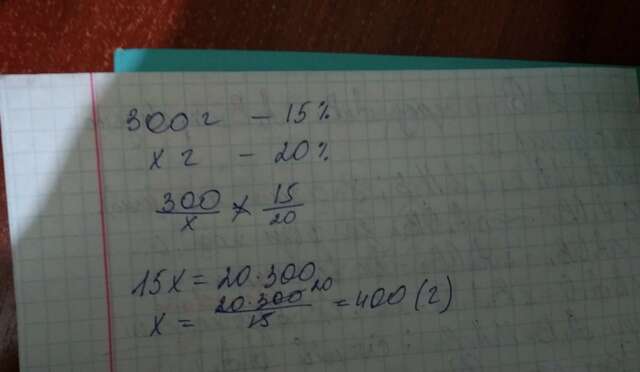 300 г – 15%
x г – 20%
300/x × 15/20
15x = 20·300
x = 20·300/15 20 = 400 (г)